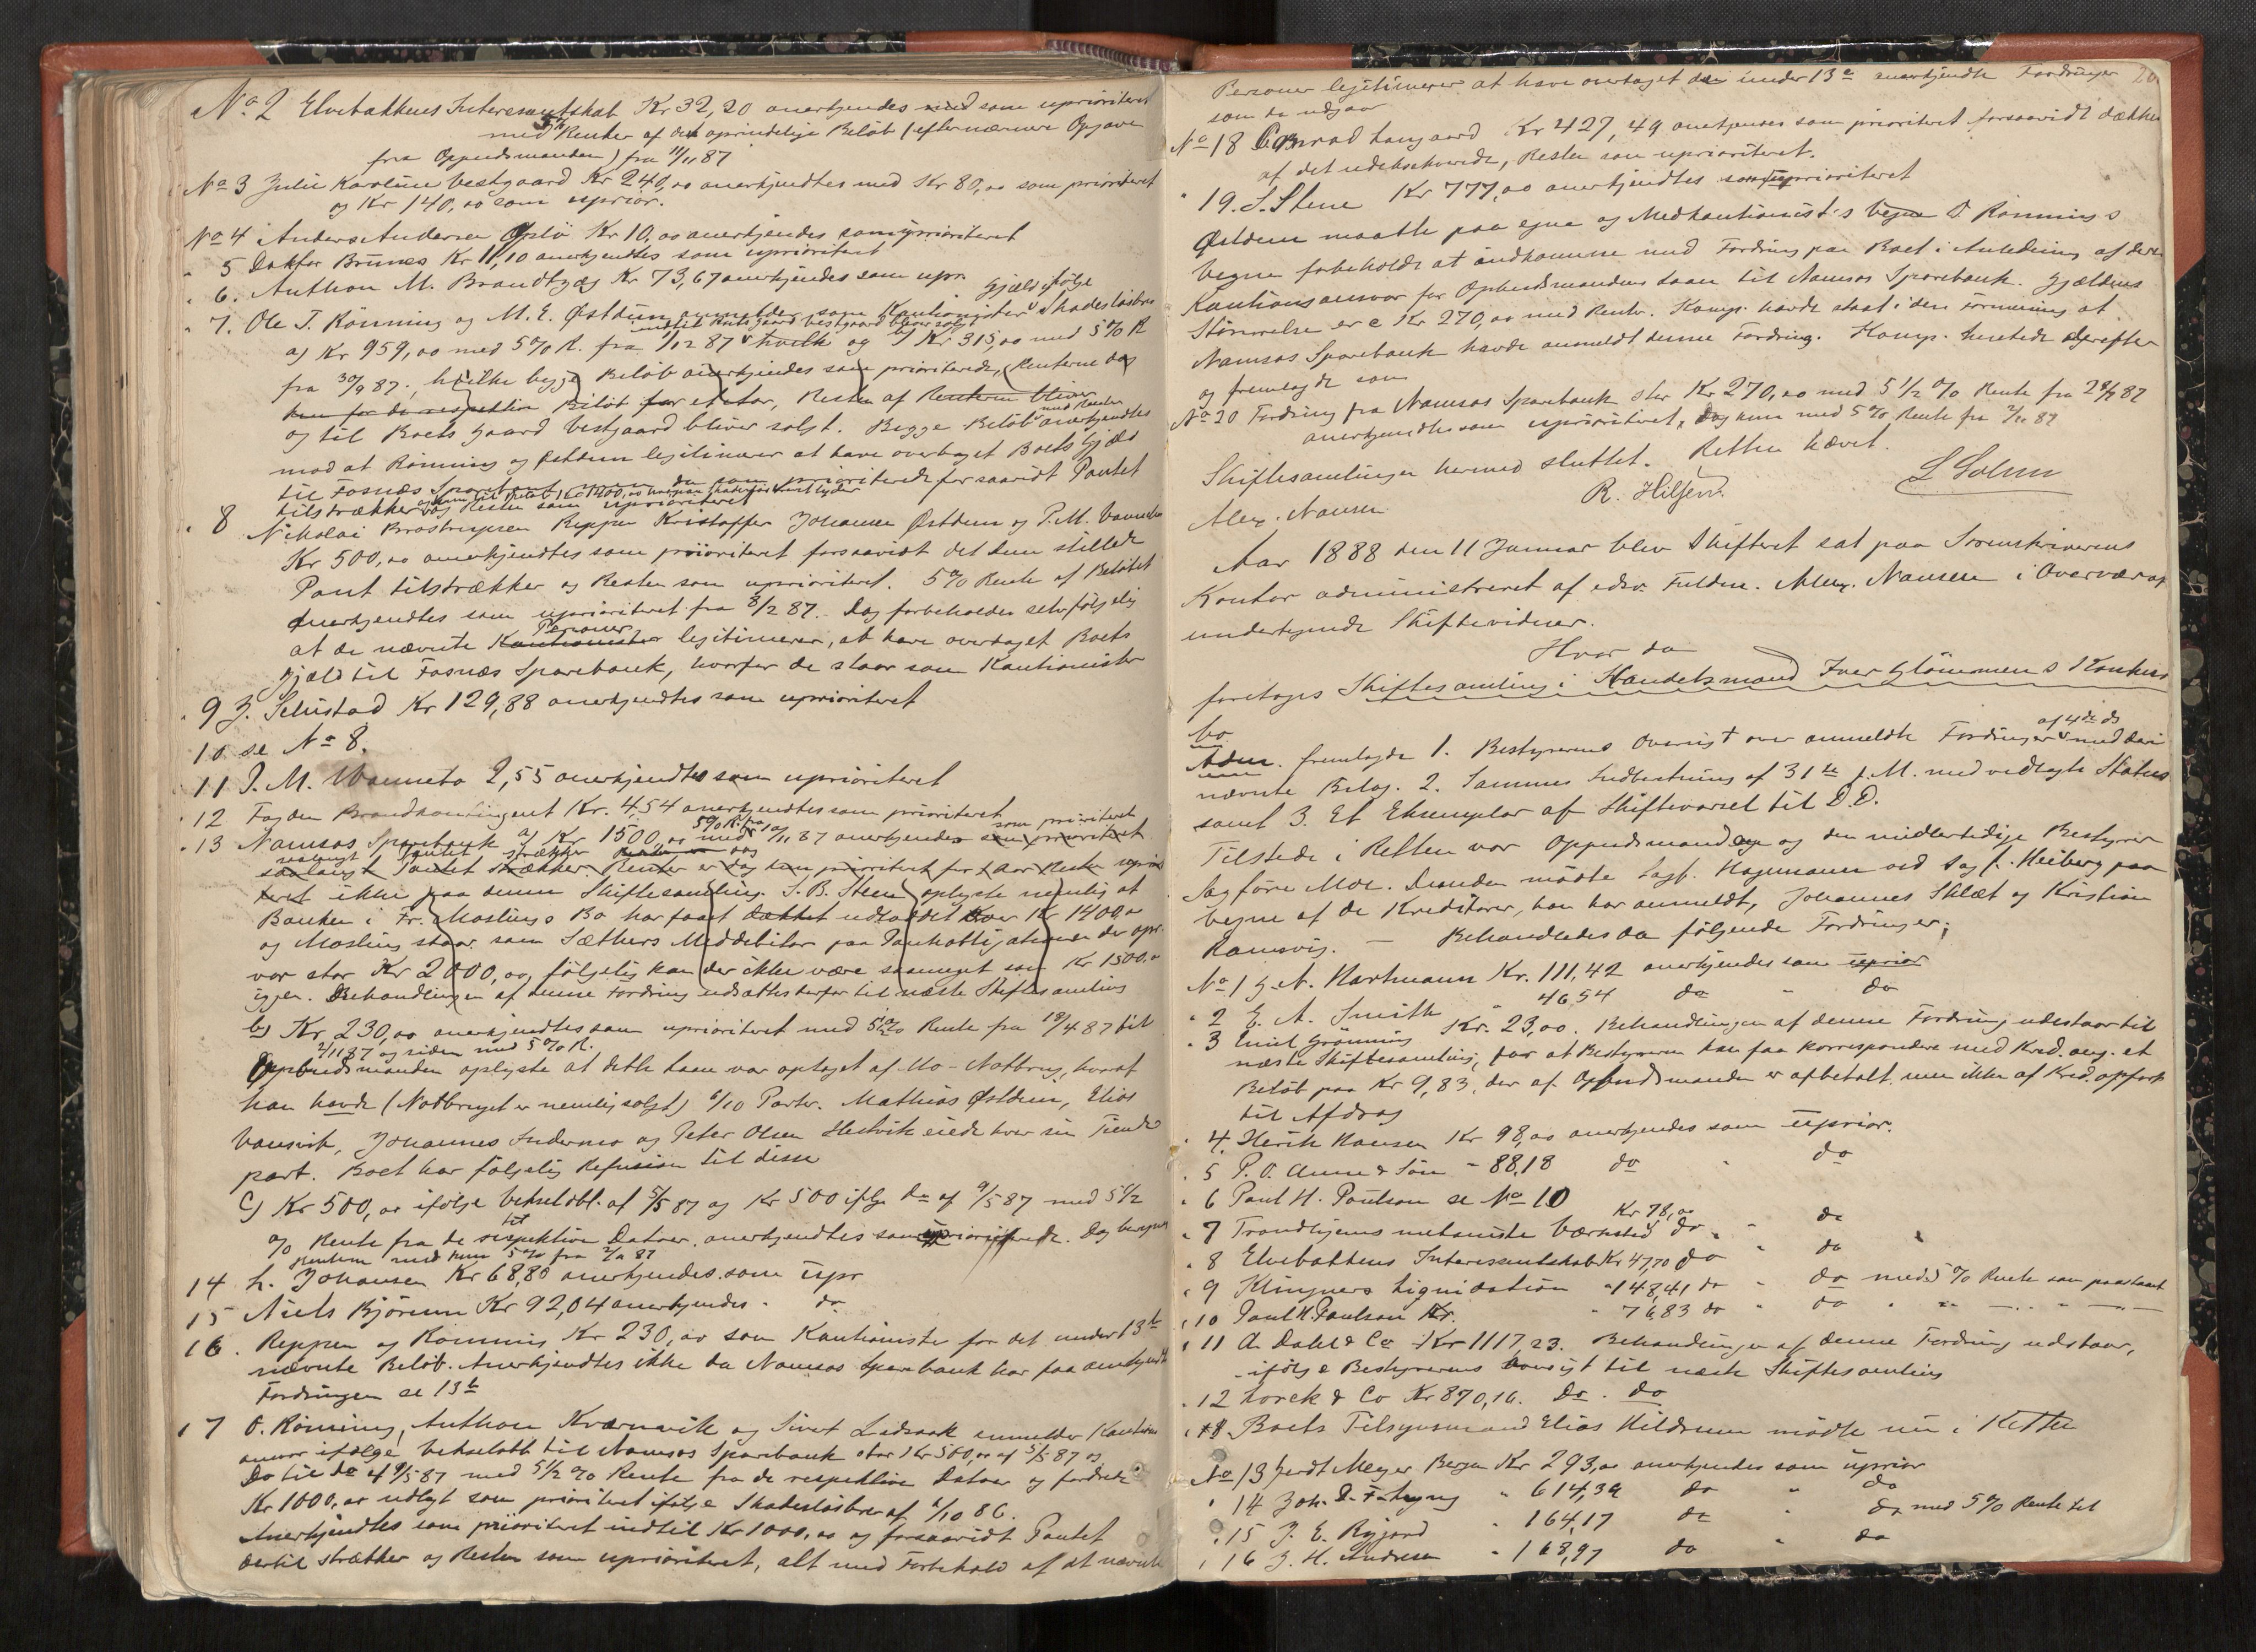 No 2 Elvebakkens Interessentskab Kr 32,20 anerkjendes med som uprioriteret
med 5% Renter af det oprindelige Beløb (efter nærmere Opgave
fra Opbudsmanden) fra 11/11 87
No 3 Julie Karoline Vestgaard Kr 240,00 anerkjendtes med Kr 80,00 som prioriteret
og Kr 140,00 som uprior.
No 4 Anders Andersen Opló Kr 10,00 anerkjendes som uprioriteret
" 5 Doktor Brunes Kr 11,10 anerkjendtes som uprioriteret
" 6. Anthon M. Brandtzæg Kr 73,67 anerkjendes som upr.
Gjæld ifølge
" 7. Ole T. Rönning og M. E. Østdun anmelder som Kautionister Skadeslösbrev
indtil Boets Gaard Vestgaard bliver solgt
a) Kr 959,00 med 5% R. fra 1/12 87 hvilk og b) Kr 315,00 med 5% R
fra 30/9 87; hvilke begge Beløb anerkjendes som prioriterede, (Renterne dog
kun for de respektive Beløb for et Aar, Resten af Renterne bliver
og til Boets Gaard Vestgaard bliver solgt. Begge Beløb med Renter anerkjendtes
mod at Rönning og Østdun legitimerer at have overtaget Boets Gjæld
til Fosnæs Sparebank, som prioriterede forsaavidt Pantet
tilstrækker og Resten som uprioriteret
" 8 Nikolai Brostrupsen Reppen Kristoffer Johansen Østdun og P. M. Vanneb
Kr 500,00 anerkjendtes som prioriteret forsaavidt det dem stillede
Pant tilstrækker og Resten som uprioriteret. 5% Rente af Beløbet
anerkjendtes som uprioriteret fra 8/12 87. Dog forbeholdes selvfølgelig
at de nævnte Kautionister Personer legitimerer, at have overtaget Boets
Gjæld til Fosnæs Sparebank, hvorfor de staar som Kautionister
" 9 J. Selnstad Kr 129,88 anerkjendtes som uprioriteret
10 se No 8.
" 11 P. M. Wanneto 2,55 anerkjendtes som uprioriteret
" 12 Fogden Brandkontingent Kr. 4,54 anerkjendtes som prioriteret
" 13 Namsos Sparebank a) Kr 1500,00 med 5% R. fra 10/11 87 anerkjendes som prioriteret som prioriteret
saalangt Pantet strækker
saalangt Pantet strækker. Renter er dog kun prioriteret for 1 Aar Resten uprio
teret ikke paa denne Skiftesamling. S. B. Steen oplyste nemlig at
Banken i Fr. Moslings Bo har faaet dækket udloddet over Kr 1400,00
og Mosling staar som Sæthers Meddebitor paa Panteobligationen der opr.
var stor Kr 2000,00, følgelig kan der ikke være saameget som Kr 1500,00
igjen. Behandlingen af denne Fordring udsættes derfor til næste Skiftesamling
b) Kr 230,00 anerkjendtes som uprioriteret med 5½% Rente fra 18/4 87 til
2/11 87 og siden med 5% R.
Opbudsmanden oplyste at dette Laan var optaget af Mo-Notbrug, hvoraf
han havde (Notbruget er nemlig solgt) 6/10 Parter. Mathias Østdun, Elias
Vansvik, Johannes Indermo og Peter Olsen Hestvik eiede hver sin Tiende
part. Boet har følgelig Refusion til disse
c) Kr 500,00 ifølge Vekselobl. af 5/5 87 og Kr 500 ifølge Do af 9/5 87 med 5½
% Rente fra de respektive Datoer. anerkjendtes som uprioriterede. Dog beregnes
Renten med kun 5% fra 2/11 87
14 L. Johansen Kr 68,80 anerkjendes som upr
15 Niels Bjørum Kr 92,04 anerkjendes " do
16. Reppen og Rönning Kr 230,00 som Kautionister for det under 13b
nævnte Beløb. Anerkjendtes ikke da Namsos Sparebank har faa anerkjendt
Fordringen se 13b
17 O. Rönning, Anthon Kværnvik og Sivert Ledsaak anmelder Kautions
ansvar ifølge Vekselobl til Namsos Sparebank stor Kr 500,00 af 5/5 87 og
Do til do af 9/5 87 med 5½% Rente fra de respektive Datoer og fordrede
Kr 1000,00 udlagt som prioriteret ifølge Skadeslösbrev af 2/10 86.
Anerkjendtes som prioriteret indtil Kr 1000,00 og forsaavidt Pantet
dertil strækker og Resten som uprioriteret, alt med Forbehold af at nævnte
Personer legitimerer at have overtaget de under 13c anerkjendte Fordringer
som da udgaar
No 18 Conrad Langaard Kr 427,49 anerkjendes som prioriteret forsaavidt dækkes
af det udekskverede, Resten som uprioriteret.
" 19. S. Stene Kr 777,00 anerkjendtes som uprioriteret
Østdun maatte paa egne og Medkautionist's Vegne O Rönnings
Vegne forbeholde at indkomme med Fordring paa Boet i Anledning af deres
Kautionsansvar for Opbudsmandens Laan til Namsos Sparebank. Gjældens
Störrelse er c Kr 270,00 med Renter. Komp. havde staat i den Formening at
Namsos Sparebank havde anmeldt denne Fordring. Komp. hentede derefter
og fremlagde som
No 20 Fordring fra Namsos Sparebank stor Kr 270,00 med 5½% Rente fra 28/9 87
anerkjendtes som uprioriteret, dog kun med 5% Rente fra 2/11 87
Skiftesamlingen hermed sluttet. Retten hævet.
Alex. Nansen R. Hilsen L Solum
Aar 1888 den 11 Januar blev Skifteret sat paa Sorenskriverens
Kontor administreret af edsv. Fuldm. Alex. Nansen i Overvær af
undertegnede Skiftevidner.
Hvor da
foretoges Skiftesamling i Handelsmand Iver Glömmens Konkurs
bo
af 4de ds
Adm. fremlagde 1. Bestyrerens Oversigt over anmeldte Fordringer med deri
nævnte Bilag. 2. Sammes Indberetning af 31te f. M. med vedlagte Status
samt 3. Et Eksemplar af Skiftevarsel til D.D.
Tilstede i Retten var Opbudsmanden og den midlertidige Bestyrer
Sagfører Moe. Desuden mödte Sagf. Hagemann ved Sagf. Heiberg paa
Vegne af de Kreditorer, han har anmeldt, Johannes Sklæt og Kristian
Ramsvig. — Behandledes da følgende Fordringer;
No 1 G. A. Hartmann Kr. 111,42 anerkjendes som uprior
" 2 E. A. Smith " 46,54 do " do
" 3 Emil Grönning Kr. 23,00. Behandlingen af denne Fordring udestaar til
næste Skiftesamling, for at Bestyreren kan faa korrespondere med Kred. ang. et
Beløb paa Kr 9,83, der af Opbudsmanden er afbetalt men ikke af Kred. opført
til Afdrag
" 4. Henrik Hansen Kr 98,00 anerkjendes som uprior.
" 5 P. O. Aune & Sön " 88,18 do " do
" 6 Paul H. Poulson se No 10
" 7 Trondhjems mekaniske Værksted Kr 78,00 do " do
" 8 Elvebakkens Interessentskab Kr 47,70 do " do
" 9 Klingners Liquidation " 148,41 do " do med 5% Rente som paastaaet
" 10 Paul H. Poulson Kr. " 76,83 do " do " " — " — " —
" 11 A. Dahl & Co Kr 1117,23. Behandlingen af denne Fordring udstaar,
ifølge Bestyrerens Oversigt til næste Skiftesamling
" 12 Lorck & Co Kr 870,16. Do. do
Boets Tilsynsmand Elias Hildrum mödte nu i Retten
No 13 Gerdt Meyer Bergen Kr 293,00 anerkjendes som uprior
" 14 Joh. D. F. Lysng " 614,39 do " do
" 15 J. E. Rygord " 164,17 do " do med 5% Rente til
" 16 J. H. Andresen " 168,97 do " do